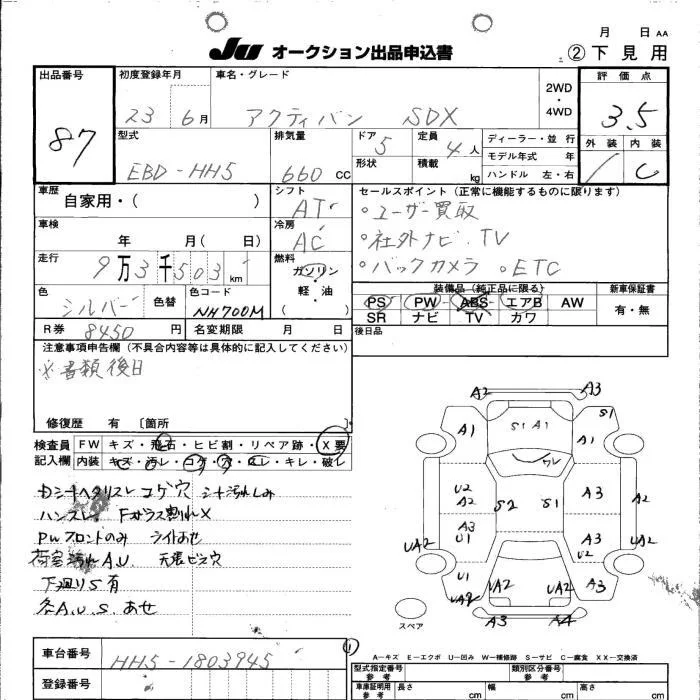 月 日 AA
JU オークション出品申込書 ②下見用
出品番号 87
初度登録年月 23年 6月
車名・グレード アクティバン SDX
2WD・4WD
評価点 3.5
外装 内装 C
型式 EBD-HH5
排気量 660 CC
ドア 5
形状
定員 4人
積載 kg
ディーラー・並行
モデル年式 年
ハンドル 左・右
車歴 自家用・( )
シフト AT
セールスポイント (正常に機能するものに限ります)
。ユーザー買取
。社外ナビ.TV
。バックカメラ 。ETC
車検 年 月( 日)
冷房 AC
走行 9万3千503 km
燃料 ガソリン・軽・油 ( )
色 シルバー 色替
色コード NH700M
装備品 (純正品に限る)
PS PW ABS エアB AW
SR ナビ TV カワ
新車保証書 有・無
R券 8450円
名変期限 月 日
後日品
注意事項申告欄 (不具合内容等は具体的に記入してください)
※書類後日
修復歴 有 〔箇所 〕
検査員記入欄
FW キズ・飛石・ヒビ割・リペア跡・X要
内装 キズ・汚レ・コゲ・穴・スレ・キレ・破レ
Dシートヘタリスレ コゲ穴 シート汚れしみ
ハンスレ Fガラス割れX
PWフロントのみ ライトあせ
荷室汚れA.U. 天張ビス穴
下廻りS有
各A.U.S.あせ
A2 A3
A1 S1 A1 S1 A1
ワレ
U2 A2 S2 S1 A3 A2
A3 U1 A3 U2
UA2 UA2
U1 UA2 UA2 UA2 A3
A3 A4
スペア
A-キズ E-エクボ U-凹み W-補修跡 S-サビ C-腐食 XX-交換済
車台番号 HH5-1803945
①
登録番号
型式指定番号 参考
類別区分番号 参考
車庫証明用 参考 長さ cm 幅 cm 高さ cm